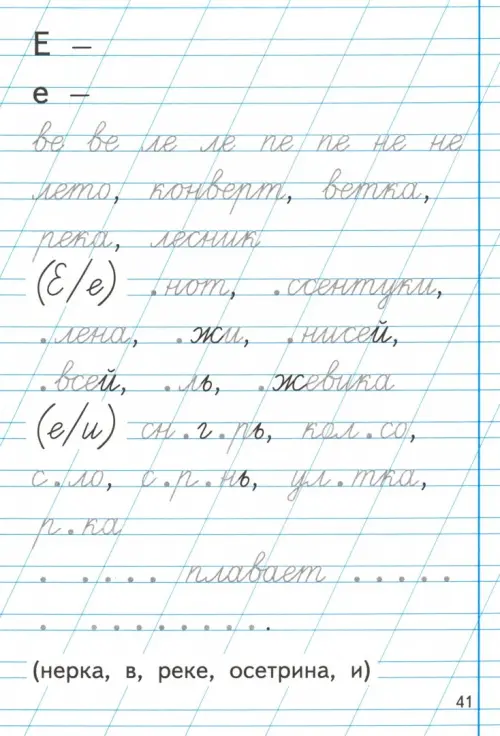 Е –
е –
ве ве ле ле пе пе не не
лето, конверт, ветка,
река, лесник
(Е/е) .нот, .ссентуки,
.лена, .жи, .нисей,
.всей, .ль, .жевика
(е/и) сн.г.рь, кол.со,
с.ло, с.р.нь, ул.тка,
р.ка
. .... плавает .....
. .........
(нерка, в, реке, осетрина, и)
41